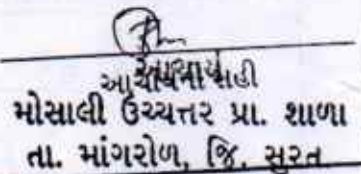 આચાર્યની સહી
મોસાલી ઉચ્ચત્તર પ્રા. શાળા
તા. માંગરોળ, જિ. સુરત